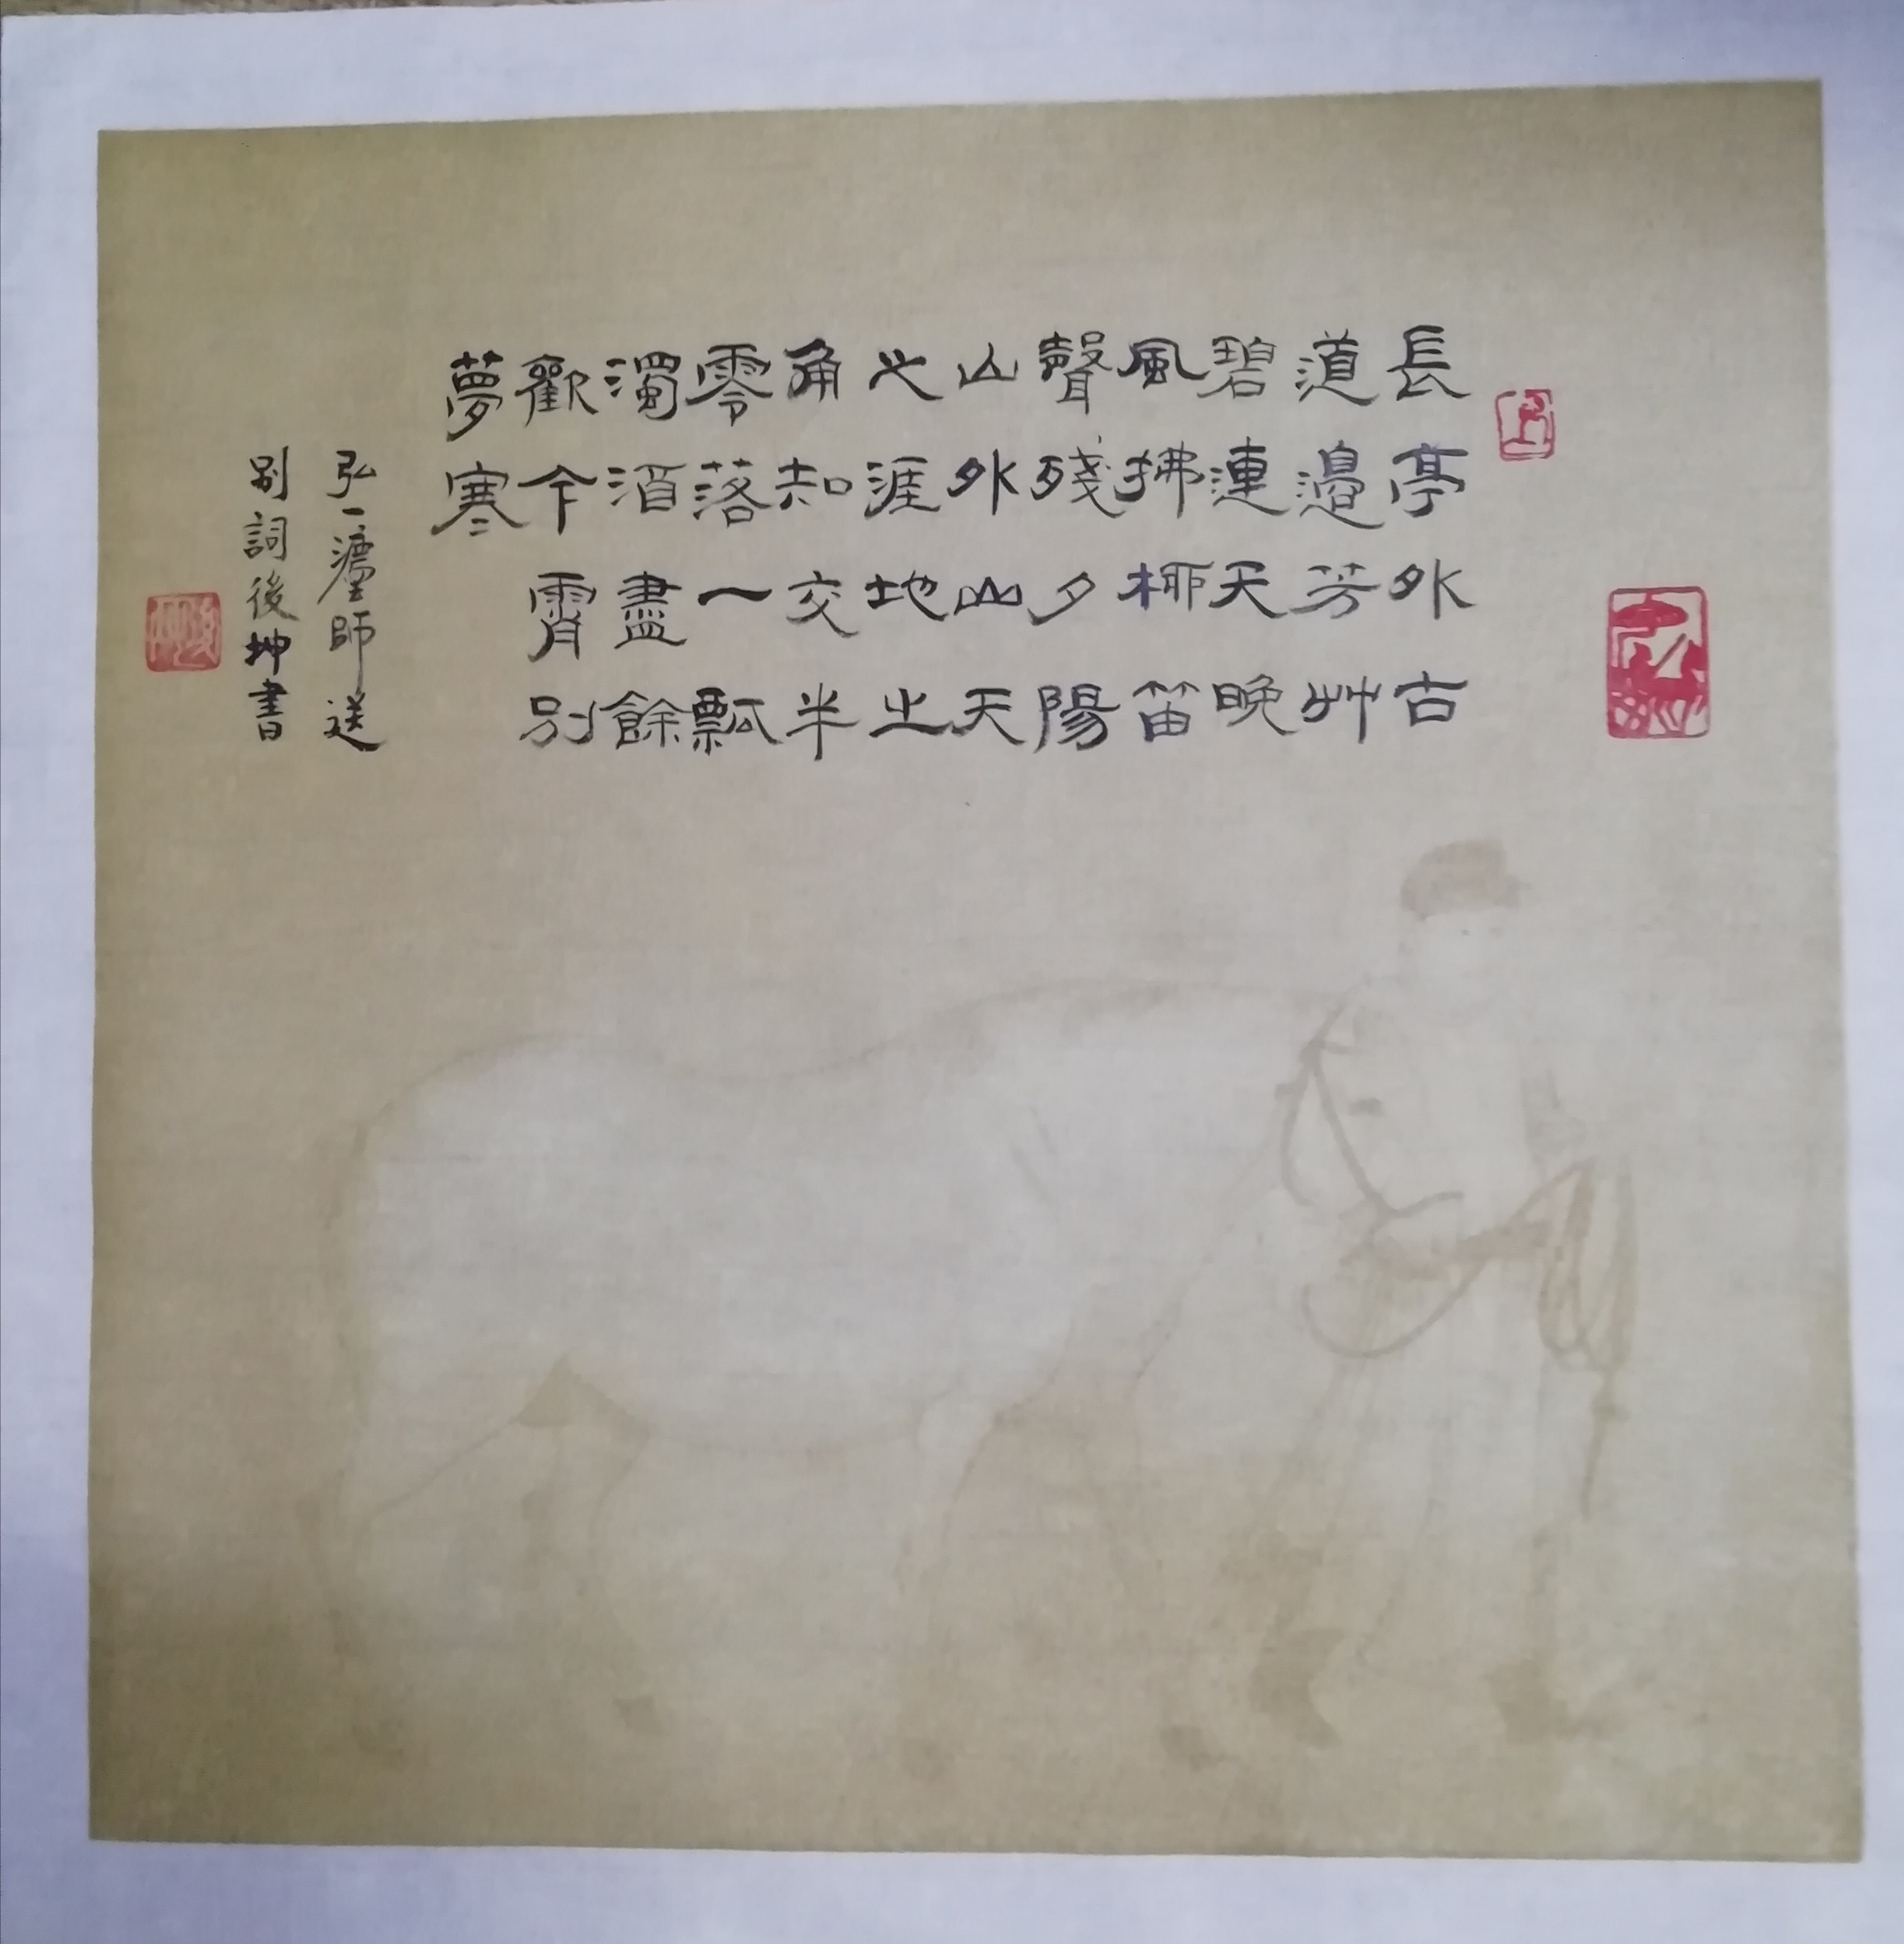 長亭外古
道邊芳艸
碧連天晚
風拂柳笛
聲殘夕陽
山外山天
之涯地之
角知交半
零落一瓢
濁酒盡餘
歡今宵別
夢寒
弘一灋師送
別詞後坤書